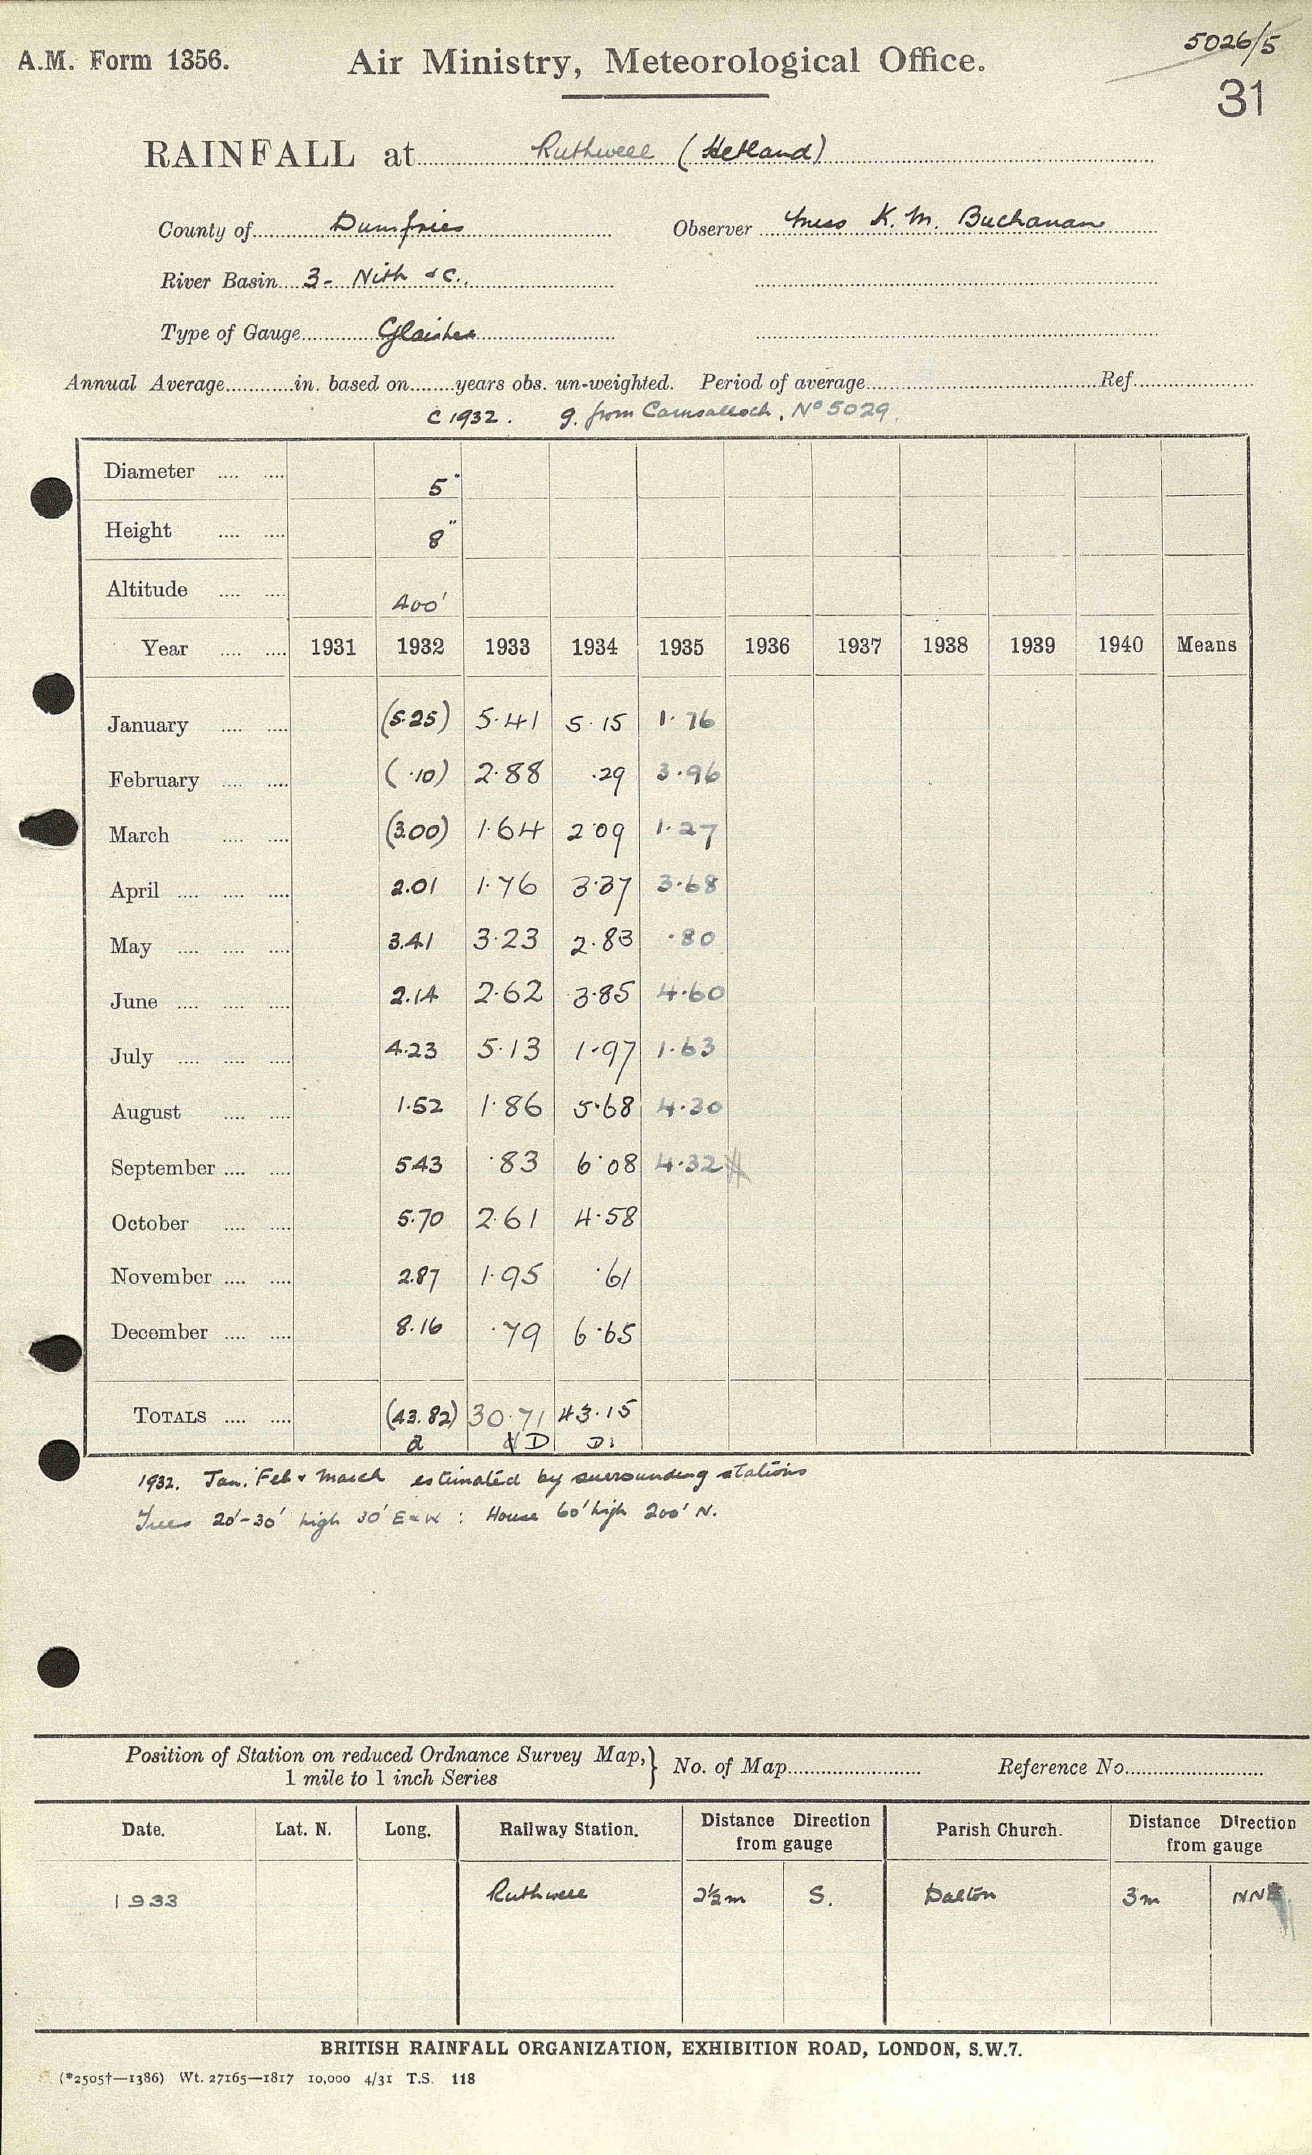 5026/5
A.M. Form 1356. Air Ministry, Meteorological Office.
31
RAINFALL at Ruthwell (Hetland)
County of Dumfries Observer Miss K. M. Buchanan
River Basin 3- Nith &c.
Type of Gauge Glaisher
Annual Average in. based on years obs. un-weighted. Period of average Ref.
c 1932. g. from Carnsalloch, No 5029
Diameter 5"
Height 8"
Altitude 400'
Year 1931 1932 1933 1934 1935 1936 1937 1938 1939 1940 Means
January (5.25) 5.41 5.15 1.76
February (.10) 2.88 .29 3.96
March (3.00) 1.64 2.09 1.27
April 2.01 1.76 3.37 3.68
May 3.41 3.23 2.83 .80
June 2.14 2.62 3.85 4.60
July 4.23 5.13 1.97 1.63
August 1.52 1.86 5.68 4.30
September 5.43 .83 6.08 4.32
October 5.70 2.61 4.58
November 2.87 1.95 .61
December 8.16 .79 6.65
TOTALS (43.82) 30.71 43.15
1932. Jan. Feb & March estimated by surrounding stations
Trees 20'-30' high 30' E & W : House 60' high 200' N.
Position of Station on reduced Ordnance Survey Map, } No. of Map Reference No.
1 mile to 1 inch Series
Date. Lat. N. Long. Railway Station. Distance Direction from gauge Parish Church. Distance Direction from gauge
1933 Ruthwell 2½m S. Dalton 3m NNE
BRITISH RAINFALL ORGANIZATION, EXHIBITION ROAD, LONDON, S.W.7.
(*2505†—1386) Wt. 27165—1817 10,000 4/31 T.S. 118